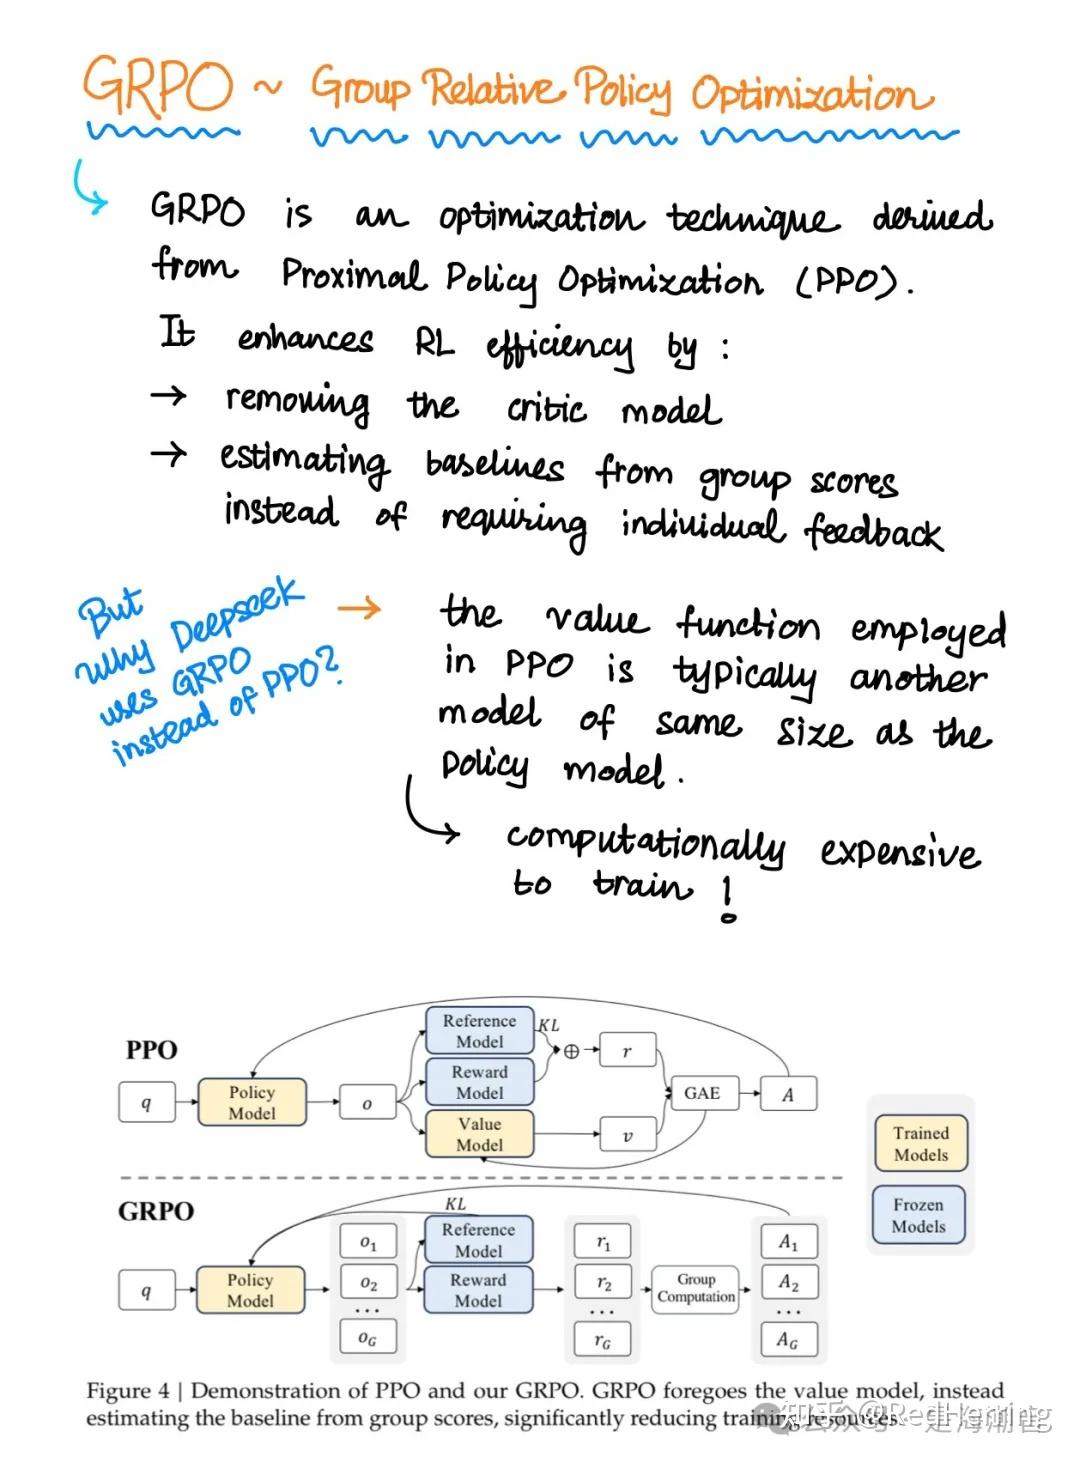 GRPO ~ Group Relative Policy Optimization
GRPO is an optimization technique derived
from Proximal Policy Optimization (PPO).
It enhances RL efficiency by :
→ removing the critic model
→ estimating baselines from group scores
instead of requiring individual feedback
But
why Deepseek
uses GRPO
instead of PPO?
→ the value function employed
in PPO is typically another
model of same size as the
policy model.
computationally expensive
to train !
PPO
q
Policy
Model
o
Reference
Model
Reward
Model
Value
Model
KL
⊕
r
v
GAE
A
Trained
Models
Frozen
Models
GRPO
q
Policy
Model
o1
o2
...
oG
KL
Reference
Model
Reward
Model
r1
r2
...
rG
Group
Computation
A1
A2
...
AG
Figure 4 | Demonstration of PPO and our GRPO. GRPO foregoes the value model, instead
estimating the baseline from group scores, significantly reducing training resources.
知乎 @RedHerring